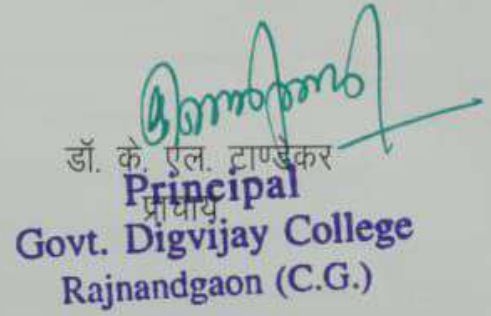 डॉ. के. एल. टाण्डेकर
Principal
प्राचार्य
Govt. Digvijay College
Rajnandgaon (C.G.)